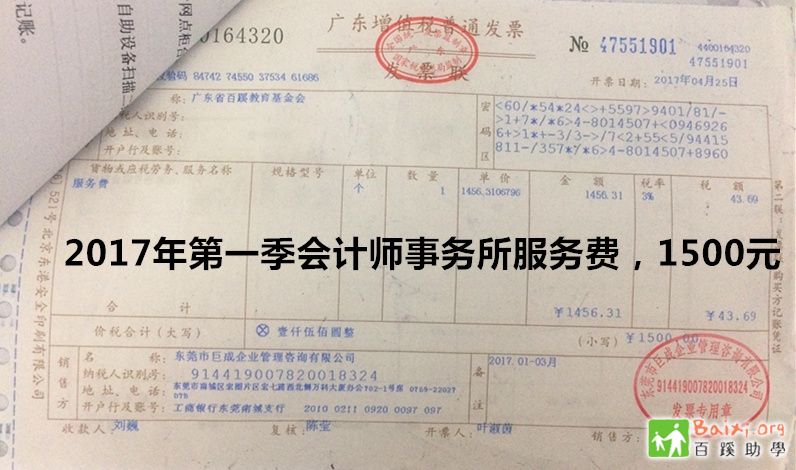 记账。
网点柜台
自助设备扫描二
00164320
广东增值税普通发票
发票联
№ 47551901
4400164320
47551901
开票日期：2017年04月25日
校验码 84742 74550 37534 61686
称：广东省百蹊教育基金会
纳税人识别号：
地址、电话：
开户行及账号：
密码区
<60/*54*24<>+5597>9401/81/-
>1+7*/*6>4-8014507+<0946926
6+>1*+-3/3->/7<2+55<5/94415
811-/357*/*6>4-8014507+8960
货物或应税劳务、服务名称 规格型号 单位 数量 单价 金额 税率 税额
服务费 个 1 1456.3106796 1456.31 3% 43.69
2017年第一季会计师事务所服务费，1500元
合计 ￥1456.31 ￥43.69
价税合计（大写） ⊗ 壹仟伍佰圆整 （小写） ￥1500.00
销售方
名称：东莞市巨成企业管理咨询有限公司
纳税人识别号：914419007820018324
地址、电话：东莞市南城区宏图片区宏七路西北侧万科大厦办公702-1号房 0769-22027
078
开户行及账号：工商银行东莞南城支行 2010 0211 0920 0097 097
备注
2017.01-03月
收款人：刘巍 复核：陈莹 开票人：叶淑茵 销售方：
东莞市巨成企业管理咨询有限公司
914419007820018324
发票专用章
第二联：发票联 购买方记账凭证
521号北京东港安全印刷有限公司
Baixi.org
百蹊助學